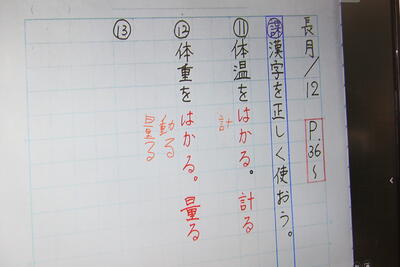 長月/12 P.36~
課漢字を正しく使おう。
⑪体温をはかる。計る
計
⑫体重をはかる。量る
動る
量る
⑬